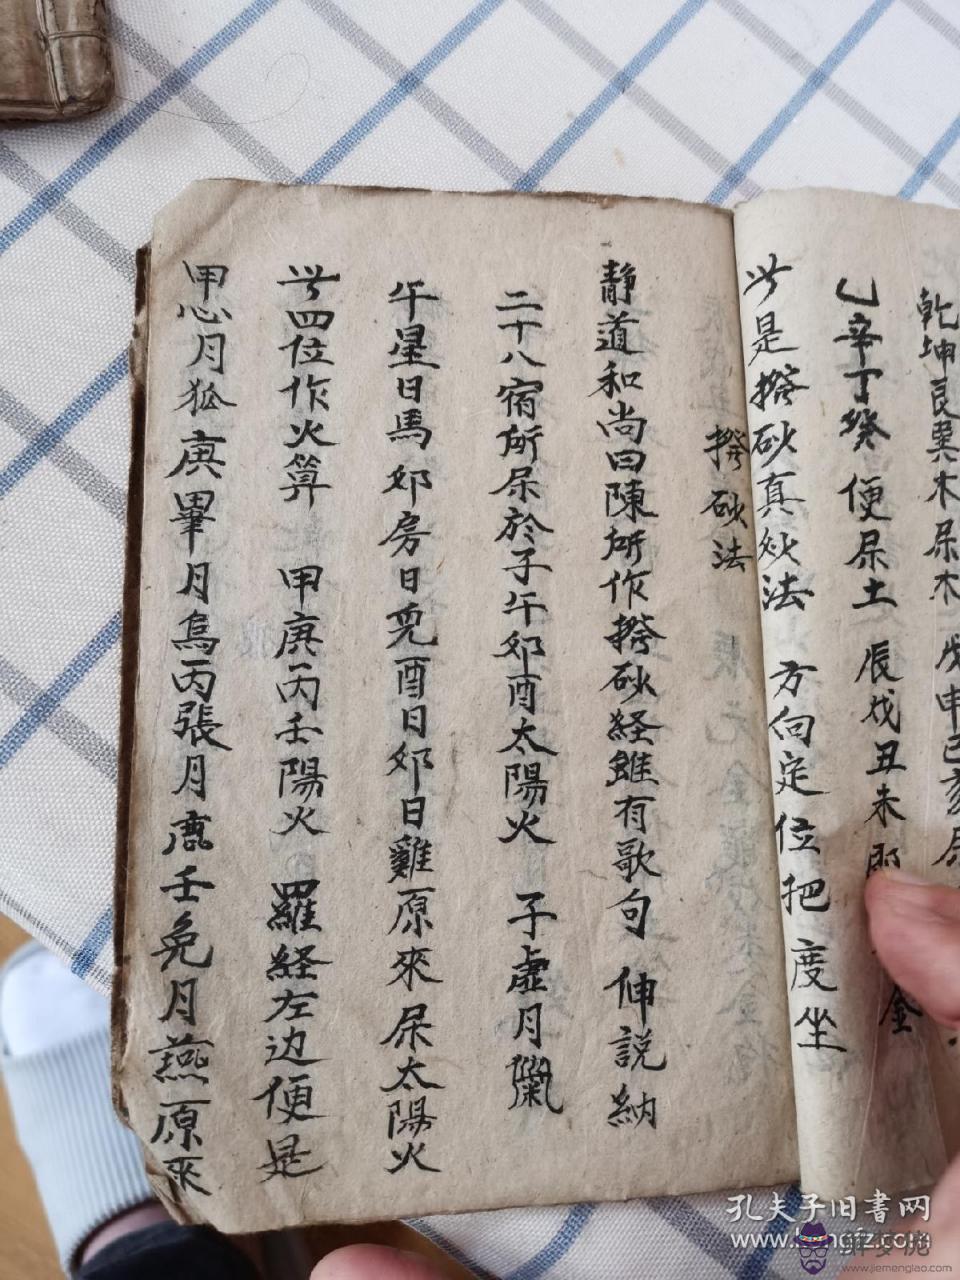 乾坤艮巽木屬木 戊申巳亥屬
乙辛丁癸便屬土 辰戌丑未 金
此是撥砂真妙法 方向定位把度坐
撥砂法
靜道和尚曰陳所作撥砂経雖有歌句 伸説納
二十八宿所屬於子午卯酉太陽火 子虛月鼠
午星日馬卯房日兎酉日卯日雞原來屬太陽火
此四位作火算 甲庚丙壬陽火 羅経左边便是
甲心月狐庚畢月烏丙張月鹿壬免月燕原來
孔夫子旧书网
www.kongfz.com
www.jiemenglao.com